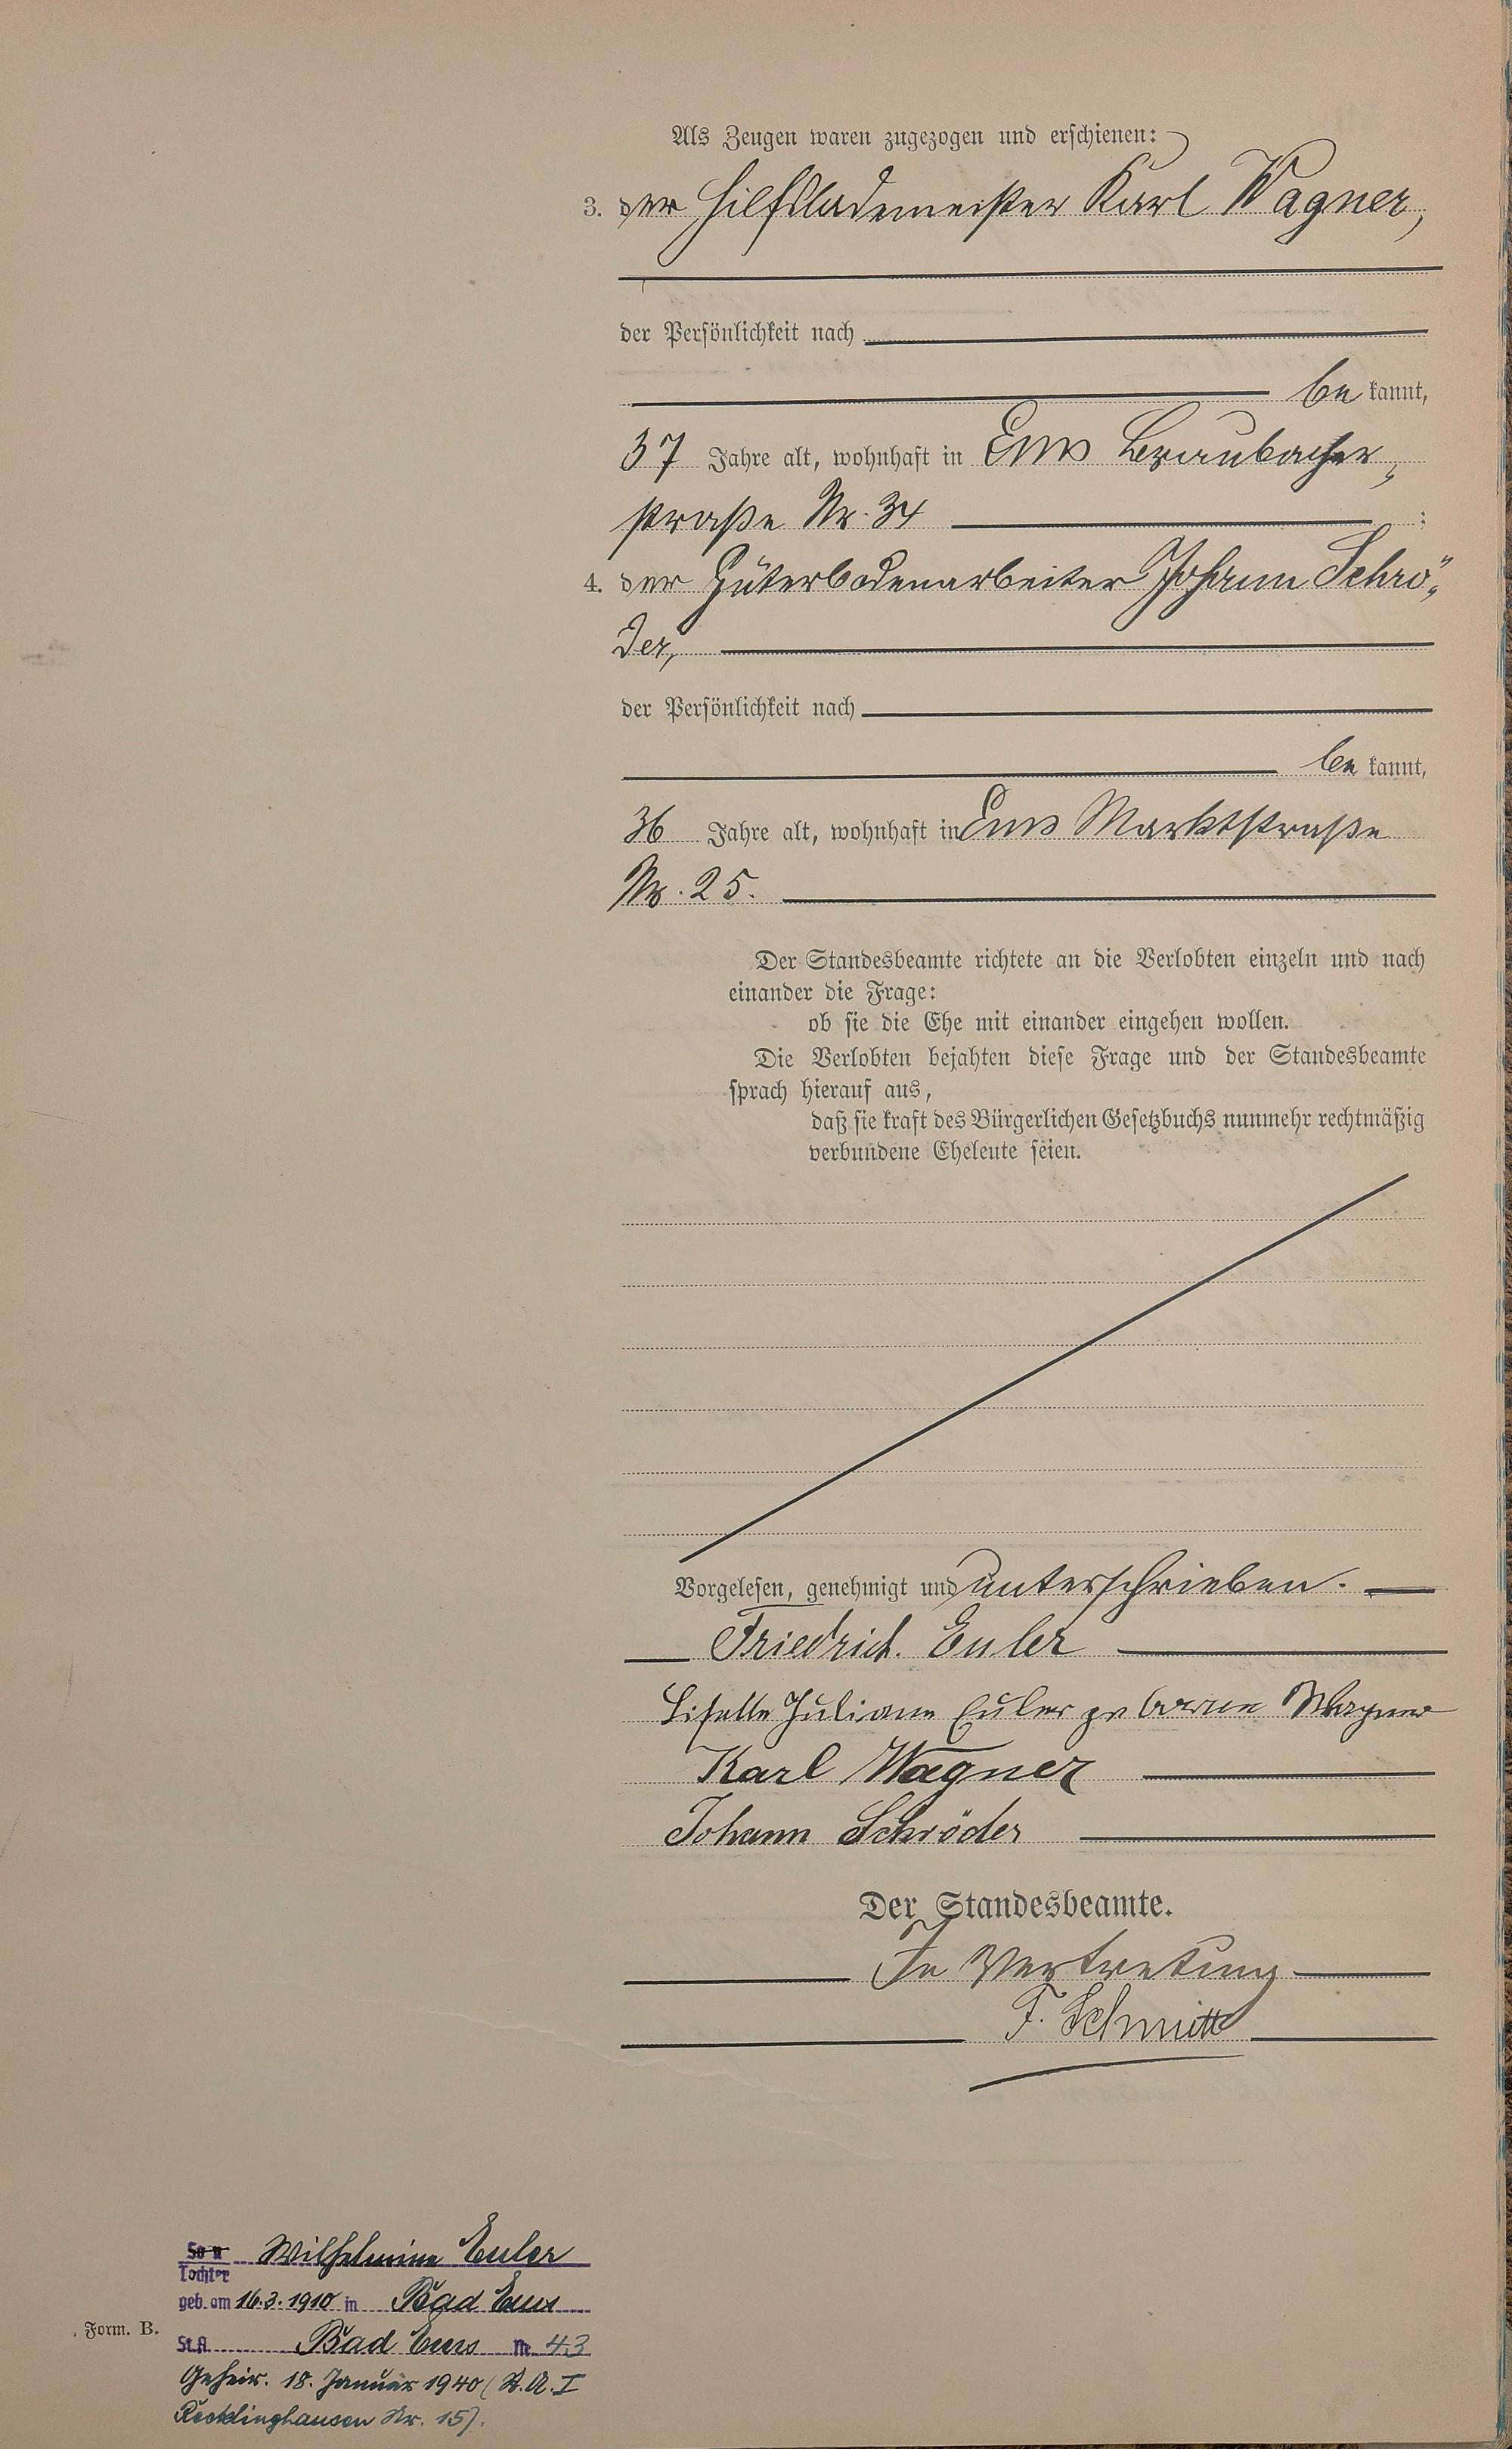 Als Zeugen waren zugezogen und erschienen:
3. der Hilfslademeister Karl Wagner,
der Persönlichkeit nach
be kannt,
37 Jahre alt, wohnhaft in Ems Braubacher„
straße Nr. 34 :
4. der Güterbodenarbeiter Johann Schrö„
der,
der Persönlichkeit nach
be kannt,
36 Jahre alt, wohnhaft in Ems Marktstraße
Nr. 25.
Der Standesbeamte richtete an die Verlobten einzeln und nach
einander die Frage:
ob sie die Ehe mit einander eingehen wollen.
Die Verlobten bejahten diese Frage und der Standesbeamte
sprach hierauf aus,
daß sie kraft des Bürgerlichen Gesetzbuchs nunmehr rechtmäßig
verbundene Eheleute seien.
Vorgelesen, genehmigt und unterschrieben.
Friedrich. Euler
Juliane Euler geborene Wagner
Karl Wagner
Johann Schröder
Der Standesbeamte.
In Vertretung
F. Schmitt
Sohn Wilhelmine Euler
Tochter
geb. am 16.3.1910 in Bad Ems
Form. B.
St.A. Bad Ems Nr. 43
Geheir. 18. Januar 1940 (St. A. I
Recklinghausen Nr. 15).